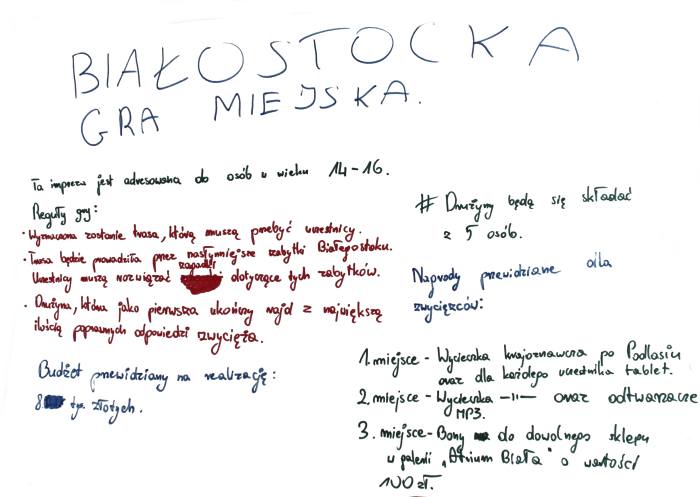 BIAŁOSTOCKA
GRA MIEJSKA.
Ta impreza jest adresowana do osób w wieku 14-16.
Reguły gry:
• Wyznaczona zostanie trasa, którą muszą przebyć uczestnicy.
• Trasa będzie prowadziła przez najsłynniejsze zabytki Białegostoku.
Uczestnicy muszą rozwiązać zagadki dotyczące tych zabytków.
• Drużyna, która jako pierwsza ukończy rajd z największą
ilością poprawnych odpowiedzi zwycięża.
Budżet przewidziany na realizację:
8 tys. złotych.
# Drużyny będą się składać
z 5 osób.
Nagrody przewidziane dla
zwycięzców:
1. miejsce - Wycieczka krajoznawcza po Podlasiu
oraz dla każdego uczestnika tablet.
2. miejsce - Wycieczka —"— oraz odtwarzacze
MP3.
3. miejsce - Bony do dowolnego sklepu
w galerii „Atrium Biała" o wartości
100 zł.